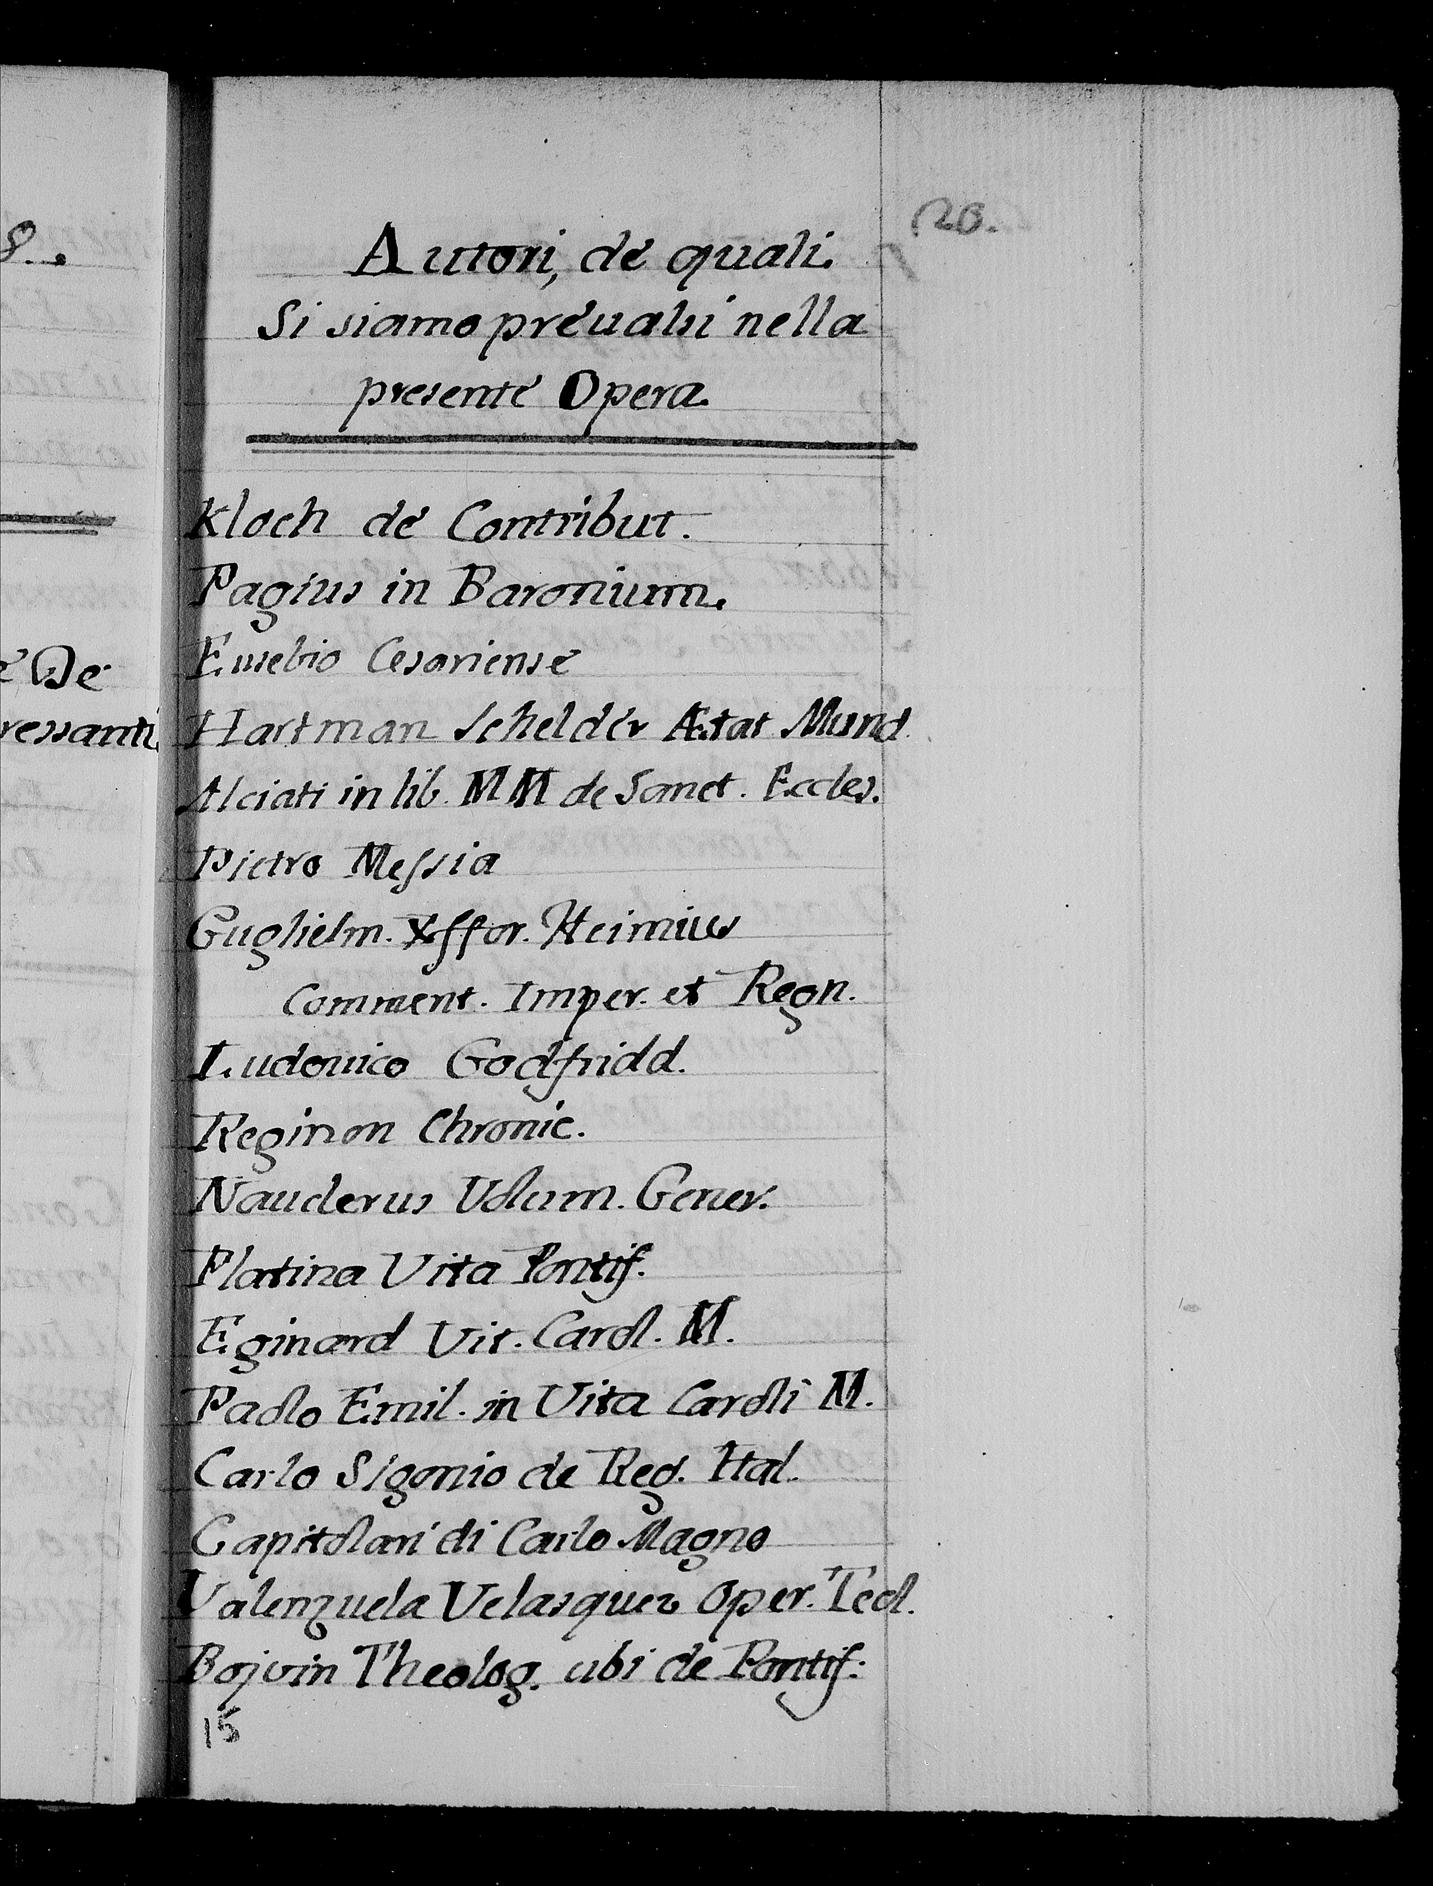 20.
Autori, de quali
Si siamo preualsi nella
presente Opera.
Kloch de Contribut.
Pagius in Baronium.
Eusebio Cesariense
Hartman Schelder Ætat Mund
Alciati in lib. MM de Sanct. Eccles.
Pietro Messia
Guglielm. Xffor. Heimius
Comment. Imper. et Regn.
Ludouico Godfridd.
Reginon Chronic.
Nauclerus Volum. Gener.
Platina Vita Pontif.
Eginard Vit. Carol. M.
Paolo Emil. in Vita Caroli M.
Carlo Sigonio de Reg. Ital.
Capitolari di Carlo Magno
Valenzuela Velasquez Oper. Teol.
Bojvin Theolog. ubi de Pontif:
15
8.
De
ressanti